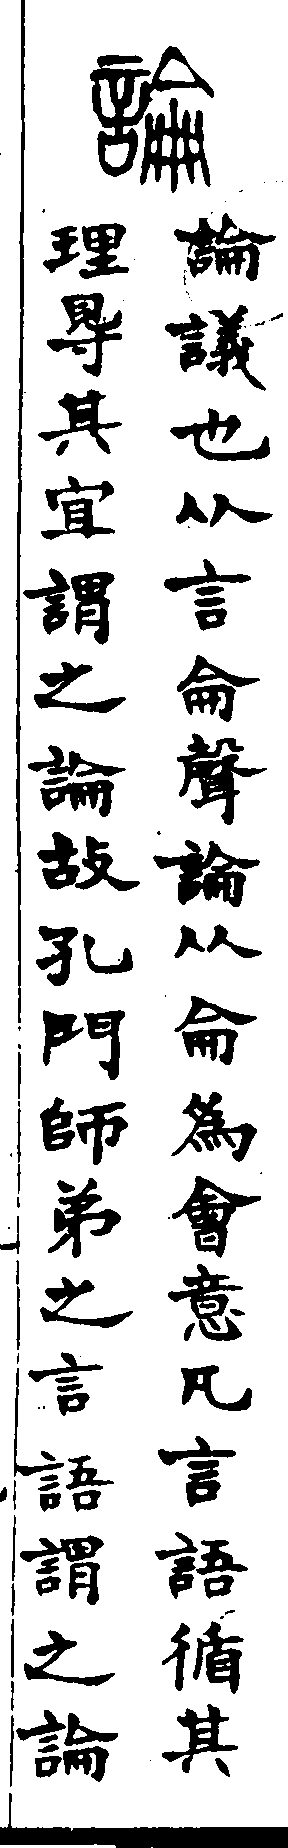 論
論議也从言侖聲論从侖為會意凡言語循其
理㝵其宜謂之論故孔門師弟之言語謂之論